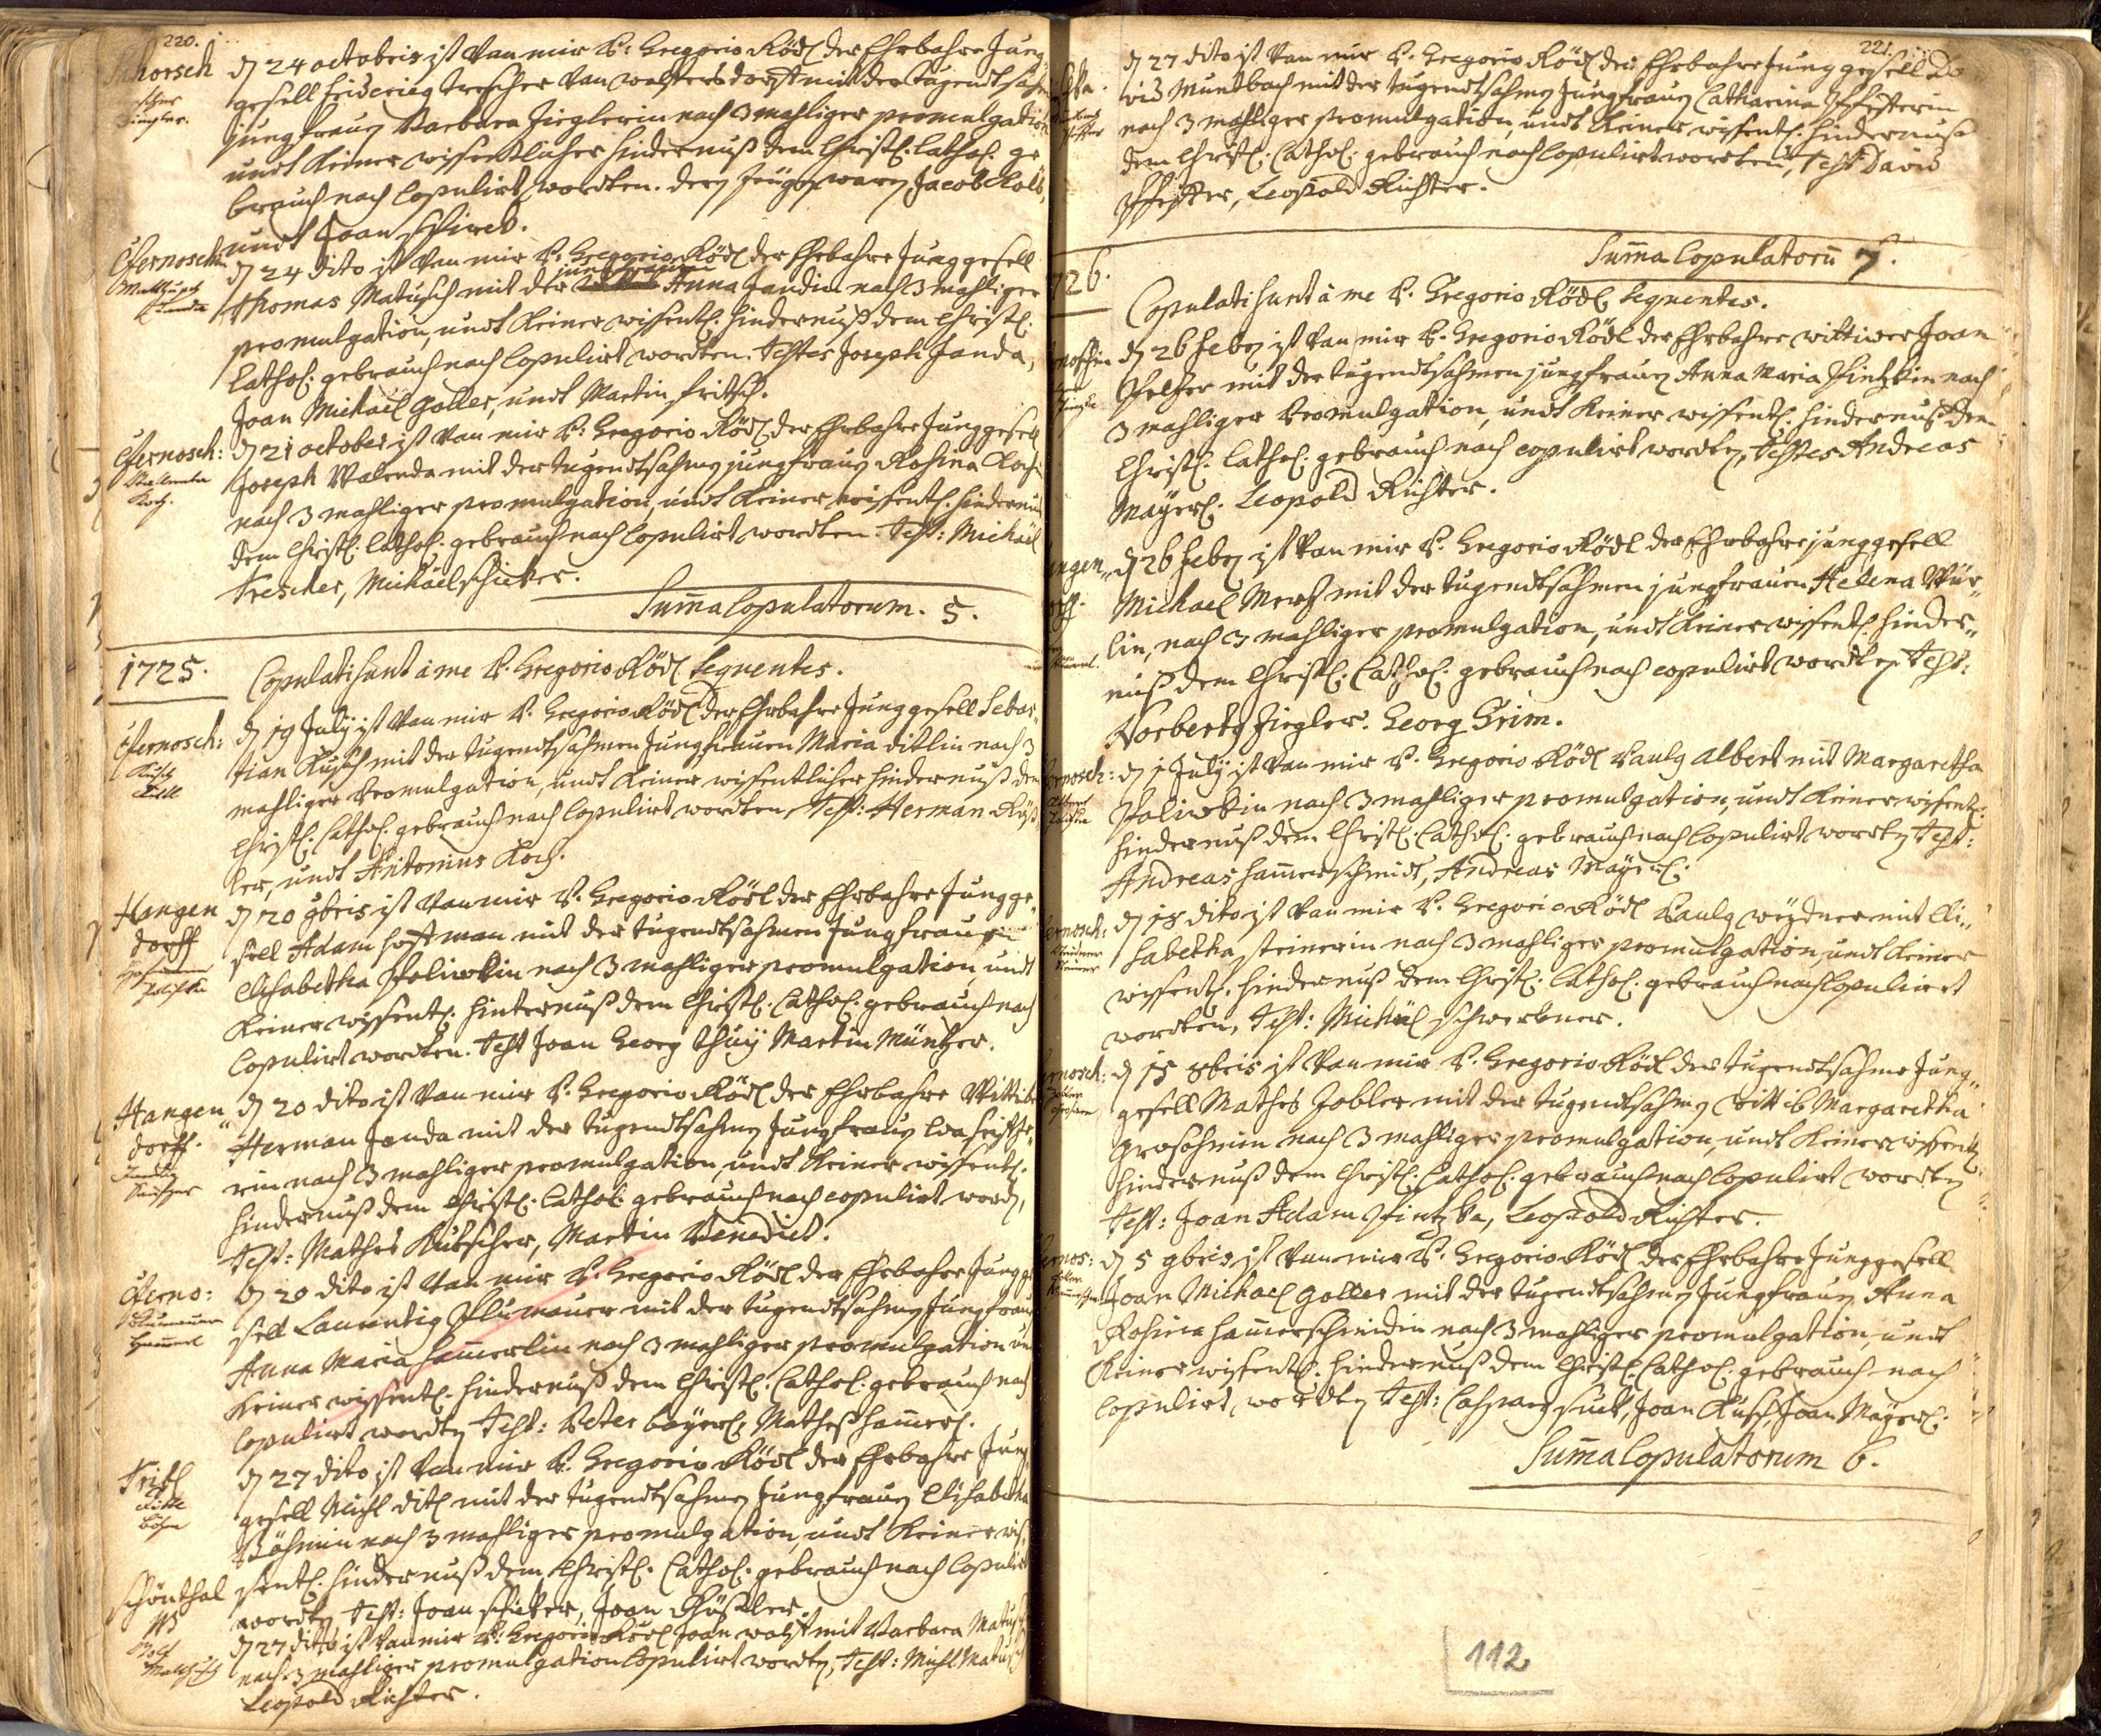 220.
d 24 octobris ist Van mir P: Gregorio Rödl der Ehrbahre Jung
gesell Friderieg trescher Van
jungfrauen Barbara Zieglerin nach 3 mahliger promulgation
undt Keiner wissentlicher hindernuß dem Christl: Cathol: ge
brauch nach Copulirt wordten. deren zeügen waren Jacob
undt Joan
Cžernosch:
d 24 dito ist Van mir P: Gregorio Rödl der Ehrbahre Junggesell
jungfrauen
Thomas Matusch mit der Anna Jandin nach 3 mahliger
promulgation, undt Keiner wissentl: hindernuß dem Christl:
Cathol: gebrauch nach Copulirt wordten. testes Joseph Janda,
Joan Michael Goller, undt Martin fritsch.
Cžernosch:
Koch.
d 21 october ist Van mir P: Gregorio Rödl der Ehrbahre Junggesell
Joseph Walenda mit der tugendtsahmen jungfrauen Rosina Koch
nach 3 mahliger promulgation, undt Keiner wissentl: hindernuß
dem Christl: Cathol: gebrauch nach Copulirt wordten. Test: Michael
Trescher, Michael Schicker.
Sum̄a Copulatorum. 5.
1725.
Copulati sunt à me P. Gregorio Rödl sequentes.
Cžernosch:
d 19 July ist Van mir P. Gregorio Rödl der Ehrbahre Junggesell Sebas,,
tian Kusch mit der tugendtsahmen Jungfrauen Maria ditlin nach 3
mahliger Promulgation, undt Keiner wissentlicher hindernuß dem
Christl: Cathol: gebrauch nach Copulirt wordten. Test: Herman Röß
ler, undt Antonius Koch.
Hangen
dorff
d 20 9bris ist Van mir P. Gregorio Rödl der Ehrbahre Jungge,,
sell Adam hoffman mit der tugendtsahmen Jungfrauen
Elisabetha Poliwkin nach 3 mahliger promulgation, undt
Keiner wissentl: hinternuß dem Christl: Cathol: gebrauch nach
Copulirt wordten. Test Joan Georg Martin Müntzer.
Hangen
dorff.
d 20 dito ist Van mir P. Gregorio Rödl der Ehrbahre Wittiber
Herman Janda mit der tugendtsahmen Jungfrauen
rin nach 3 mahliger promulgation, undt Keiner wissentl:
hindernuß dem Christl: Cathol: gebrauch nach copulirt worden,
Test: Mathes Kutscher, Martin Benedict.
Cžerno:
d 20 dito ist Van mir P. Gregorio Rödl der Ehrbahre Jungge
sell Laurentius Plumauer mit der tugendtsahmen Jungfrauen
Anna Maria ham̄erlin nach 3 mahliger promulgation
Keiner wissentl: hindernuß dem Christl: Cathol: gebrauch nach
Copulirt wordten Test: Peter bayerl, Matheß ham̄erl.
d 27 dito ist Van mir P. Gregorio Rödl der Ehrbahre Jung
gesell Michl ditl mit der tugendtsahmen Jungfrauen Elisabetha
Böhmin nach 3 mahliger promulgation, undt Keiner wis
sentl: hindernuß dem Christl: Cathol: gebrauch nach Copulirt
wordten Test: Joan schicker, Joan Rößler.
Schönthal
d 27 dito ist Van mir P: Gregorio Rödl Joan wolff mit Barbara
nach 3 mahliger promulgation Copulirt wordten, Test: Michl
Leopold Richter.
221.
d 27 dito ist Van mir P. Gregorio Rödl der Ehrbahre Junggesell Da
vid Muntbach mit der tugendtsahmen Jungfrauen Catharina Pfisterin
nach 3 mahliger promulgation, undt Keiner wissentl: hindernuß
dem Christl: Cathol: gebrauch nach Copulirt wordten, Test David
Pfister, Leopold Richter.
Sum̄a Copulatorū 7.
726.
Copulati sunt à me P. Gregorio Rödl sequentes.
d 26 feber ist Van mir P. Gregorio Rödl der Ehrbahre wittiwer Joan
mit der tugendtsahmen jungfrauen Anna Maria Pintzkin nach
3 mahliger Promulgation, undt Keiner wissentl: hindernuß dem
Christl: Cathol: gebrauch nach copulirt wordten, Testes Andreas
Mayerl: Leopold Richter.
d 26 feber ist Van mir P. Gregorio Rödl der Ehrbahre junggesell
Michael mit der tugendtsahmen jungfrauen Helena
lin, nach 3 mahliger promulgation, undt Keiner wissentl: hinder,,
nuß dem Christl: Cathol: gebrauch nach copulirt wordten Test:
Norbertus Ziegler. Georg Grim.
d 1 July ist Van mir P. Gregorio Rödl Paulus Albert mit Margaretha
Poliwkin nach 3 mahliger promulgation, undt Keiner wissentl:
hindernuß dem Christl: Cathol: gebrauch nach Copulirt wordten Test:
Andreas ham̄erschmidt, Andreas Mayerl:
d 18 dito ist Van mir P. Gregorio Rödl Paulus weydner mit Eli,,
sabetha steinerin nach 3 mahliger promulgation, undt Keiner
wissentl. hindernuß dem Christl: Cathol: gebrauch nach Copuliret
wordten, Test: Michäel
d 15 8bris ist Van mir P. Gregorio Rödl der tugendtsahme Jung,,
gesell Mathes Zobler mit der tugendtsahmen Wittib Margaretha
nach 3 mahliger promulgation, undt Keiner wissentl
hindernuß dem Christl: Cathol: gebrauch nach Copulirt wordten
Test: Joan Adam Pintzka, Leopold Richter.
d 5 9bris ist Van mir P. Gregorio Rödl der Ehrbahre Junggesell
Joan Michael Goller mit der tugendtsahmen Jungfrauen Anna
Rosina ham̄erschmidin nach 3 mahliger promulgation, undt
Keiner wissentl: hindernuß dem Christl: Cathol: gebrauch nach
Copulirt wordten Test: Caspar suck, Joan Kusch, Joan Mayerl:
Sum̄a Copulatorum 6.
112